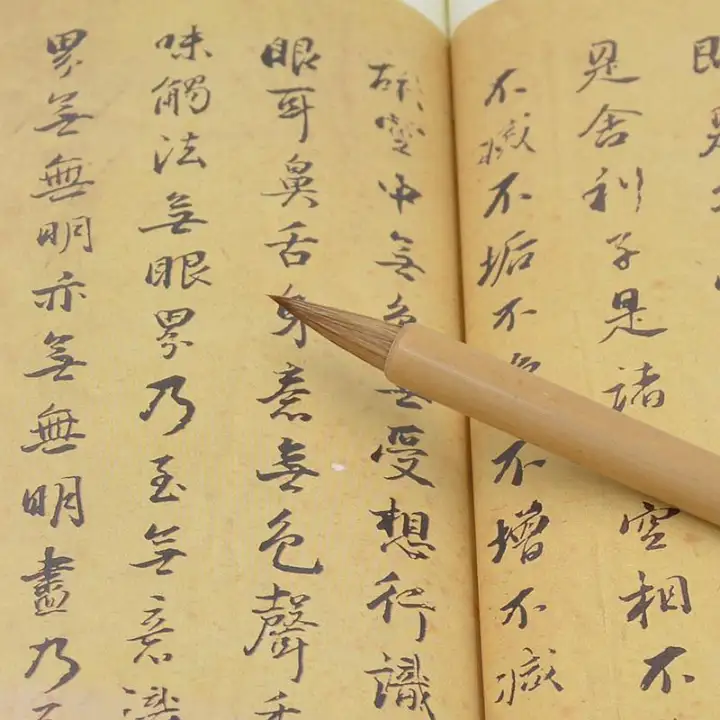 是舍利子是諸空相不
不滅不垢不不增不減
故空中無色無受想行識
眼耳鼻舌身意無色聲香
味觸法無眼界乃至無意識
界無無明亦無無明盡乃至